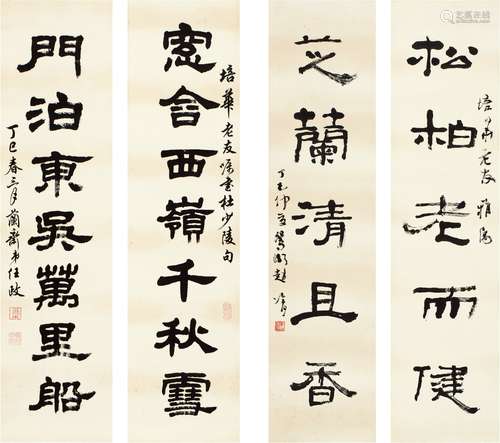 松柏老而健
培华老友雅属
芝蘭清且香
丁巳仲夏鴛湖趙冷月
窓含西嶺千秋雪
培華老友嘱書杜少陵句
門泊東吳萬里船
丁巳春三月蘭齋弟任政